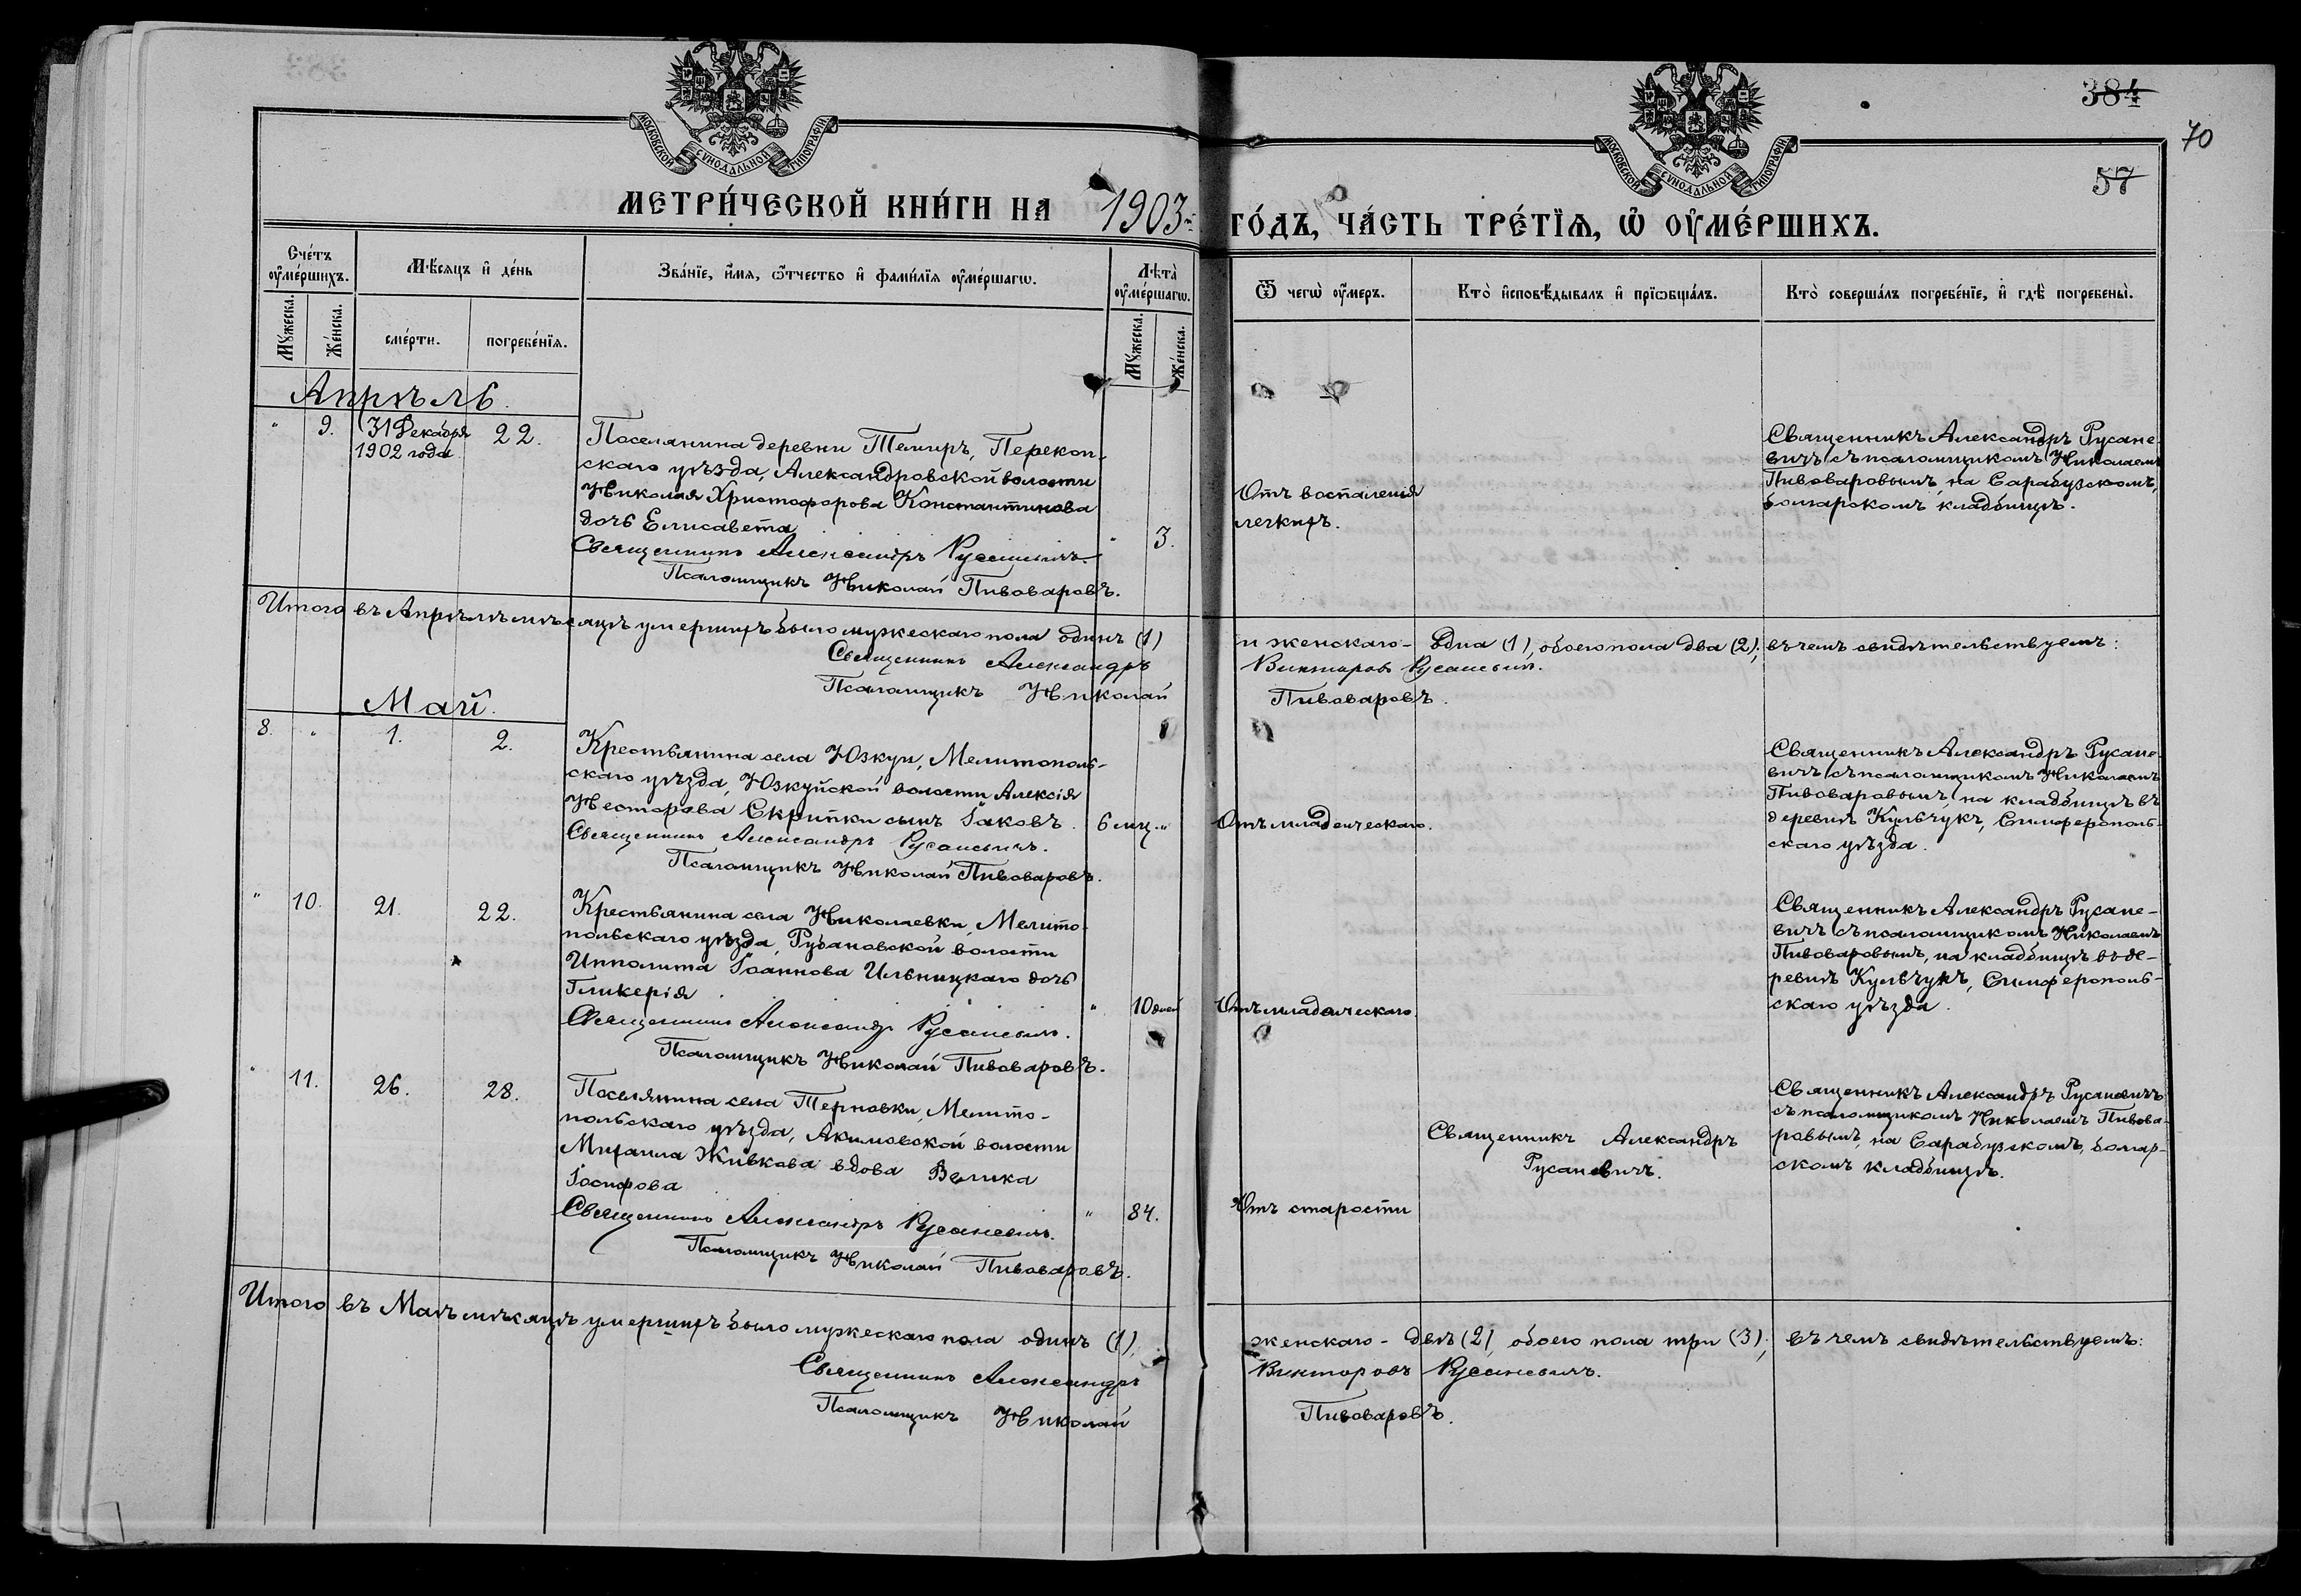 384
70
57
МОСКОВСКОЙ СѴНОДАЛЬНОЙ ТИПОГРАФІИ
МОСКОВСКОЙ СѴНОДАЛЬНОЙ ТИПОГРАФІИ
МЕТРИ́ЧЕСКОЙ КНИ́ГИ НА 1903й ГО́ДЪ, ЧА́СТЬ ТРЕ́ТЇѦ, Ѡ҆ ОУ҆МЕ́РШИХЪ.
Сче́тъ оу҆ме́ршихъ.
Мꙋ́жеска.
Же́нска.
Мѣ́сяцъ и҆ де́нь
сме́рти.
погребе́нїя.
Зва́нїе, и҆́мя, ѻ҆́тчество и҆ фами́лїя оу҆ме́ршагѡ.
Лѣ́та оу҆ме́ршагѡ.
Мꙋ́жеска.
Же́нска.
Ѿ чегѡ̀ оу҆́меръ.
Кто̀ и҆сповѣ́дывалъ и҆ прїѡбща́лъ.
Кто̀ соверша́лъ погребе́нїе, и҆ гдѣ̀ погребены̀.
Апрѣль.
" 9. 31 Декабря 1902 года 22.
Поселянина деревни Темиръ, Перекоп-
скаго уѣзда, Александровской волости
Николая Христофорова Константинова
дочь Елисавета
" 3.
Священникъ Александръ Русаневичъ.
Псаломщикъ Николай Пивоваровъ.
Отъ воспаленія
легкихъ.
Священникъ Александръ Русане-
вичъ съ псаломщикомъ Николаемъ
Пивоваровымъ, на Сарабузскомъ,
болгарскомъ кладбищѣ.
Итого въ Апрѣлѣ мѣсяцѣ умершихъ было мужескаго пола одинъ (1) и женскаго - одна (1), обоего пола два (2); въ чемъ свидѣтельствуемъ:
Священникъ Александръ Викторовъ Русаневичъ.
Псаломщикъ Николай Пивоваровъ.
Май.
8. " 1. 2.
Крестьянина села Юзкуи, Мелитополь-
скаго уѣзда, Юзкуйской волости Алексія
Несторова Скрипки сынъ Іаковъ. 6 мц. "
Священникъ Александръ Русаневичъ.
Псаломщикъ Николай Пивоваровъ.
Отъ младенческаго.
Священникъ Александръ Русане-
вичъ съ псаломщикомъ Николаемъ
Пивоваровымъ, на кладбищѣ въ
деревнѣ Кульчукъ, Симферополь-
скаго уѣзда.
" 10. 21. 22.
Крестьянина села Николаевки, Мелито-
польскаго уѣзда, Рубановской волости
Ипполита Іоаннова Ильницкаго дочь
Гликерія.
" 10 дней
Священникъ Александръ Русаневичъ.
Псаломщикъ Николай Пивоваровъ.
Отъ младенческаго.
Священникъ Александръ Русане-
вичъ съ псаломщикомъ Николаемъ
Пивоваровымъ, на кладбищѣ въ де-
ревнѣ Кульчукъ, Симферополь-
скаго уѣзда.
" 11. 26. 28.
Поселянина села Терновки, Мелито-
польскаго уѣзда, Акимовской волости
Михаила Живкова вдова Велика
Іосифова
" 84.
Священникъ Александръ Русаневичъ.
Псаломщикъ Николай Пивоваровъ.
Отъ старости
Священникъ Александръ
Русаневичъ.
Священникъ Александръ Русаневичъ
съ псаломщикомъ Николаемъ Пивова-
ровымъ, на Сарабузскомъ, болгар-
скомъ кладбищѣ.
Итого въ Маѣ мѣсяцѣ умершихъ было мужескаго пола одинъ (1), женскаго - двѣ (2), обоего пола три (3); въ чемъ свидѣтельствуемъ:
Священникъ Александръ Викторовъ Русаневичъ.
Псаломщикъ Николай Пивоваровъ.